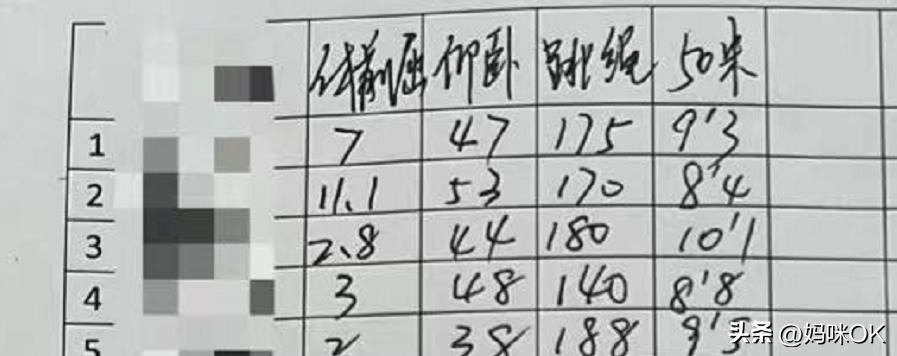 体前屈 仰卧 跳绳 50米
1 7 47 175 9'3
2 11.1 53 170 8'4
3 2.8 44 180 10'1
4 3 48 140 8'8
5 2 38 188 9'5
头条 @妈咪OK